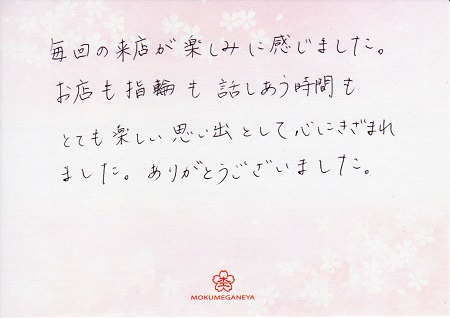 毎回の来店が楽しみに感じました。
お店も指輪も話しあう時間も
とても楽しい思い出として心にきざまれ
ました。ありがとうございました。
MOKUMEGANEYA